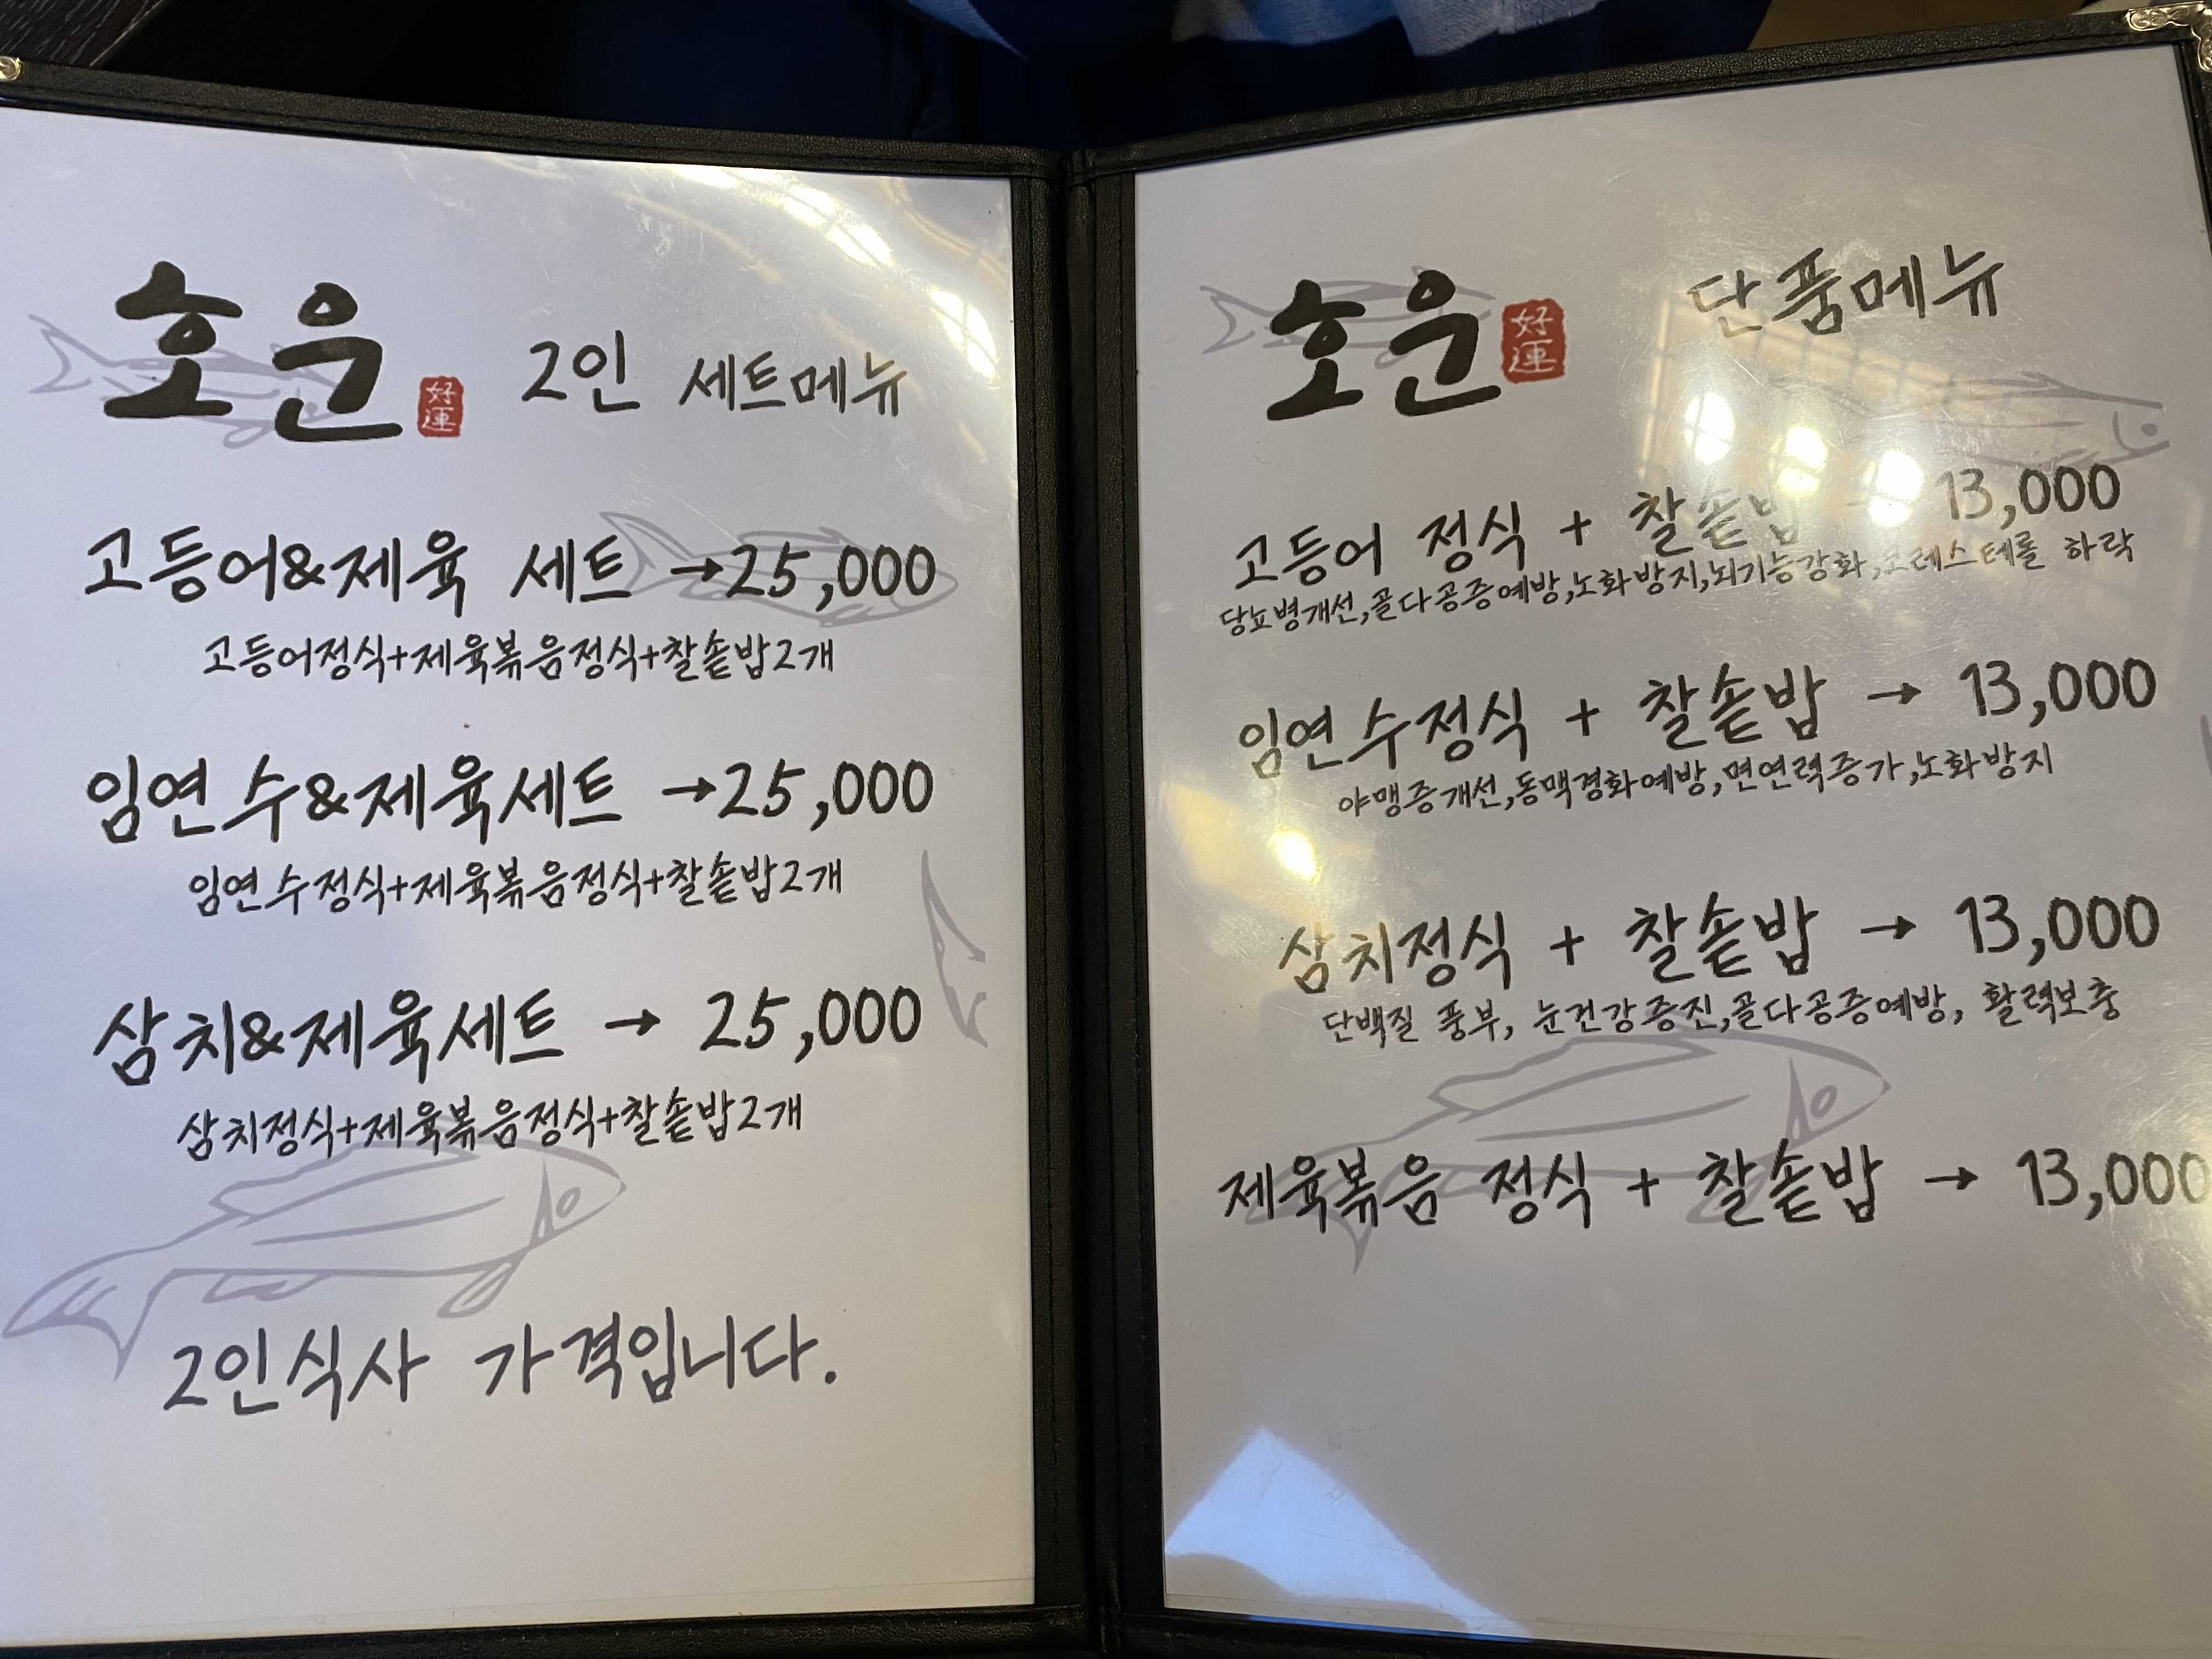 호운 好運 2인 세트메뉴
고등어&제육 세트 →25,000
고등어정식+제육볶음정식+찰솥밥2개
임연수&제육세트 →25,000
임연수정식+제육볶음정식+찰솥밥2개
삼치&제육세트 → 25,000
삼치정식+제육볶음정식+찰솥밥2개
2인식사 가격입니다.
호운 好運 단품메뉴
고등어 정식 + 찰솥밥 → 13,000
당뇨병개선,골다공증예방,노화방지,뇌기능강화,코레스테롤 하락
임연수정식 + 찰솥밥 → 13,000
야맹증개선,동맥경화예방,면연력증가,노화방지
삼치정식 + 찰솥밥 → 13,000
단백질 풍부, 눈건강증진,골다공증예방, 활력보충
제육볶음 정식 + 찰솥밥 → 13,000